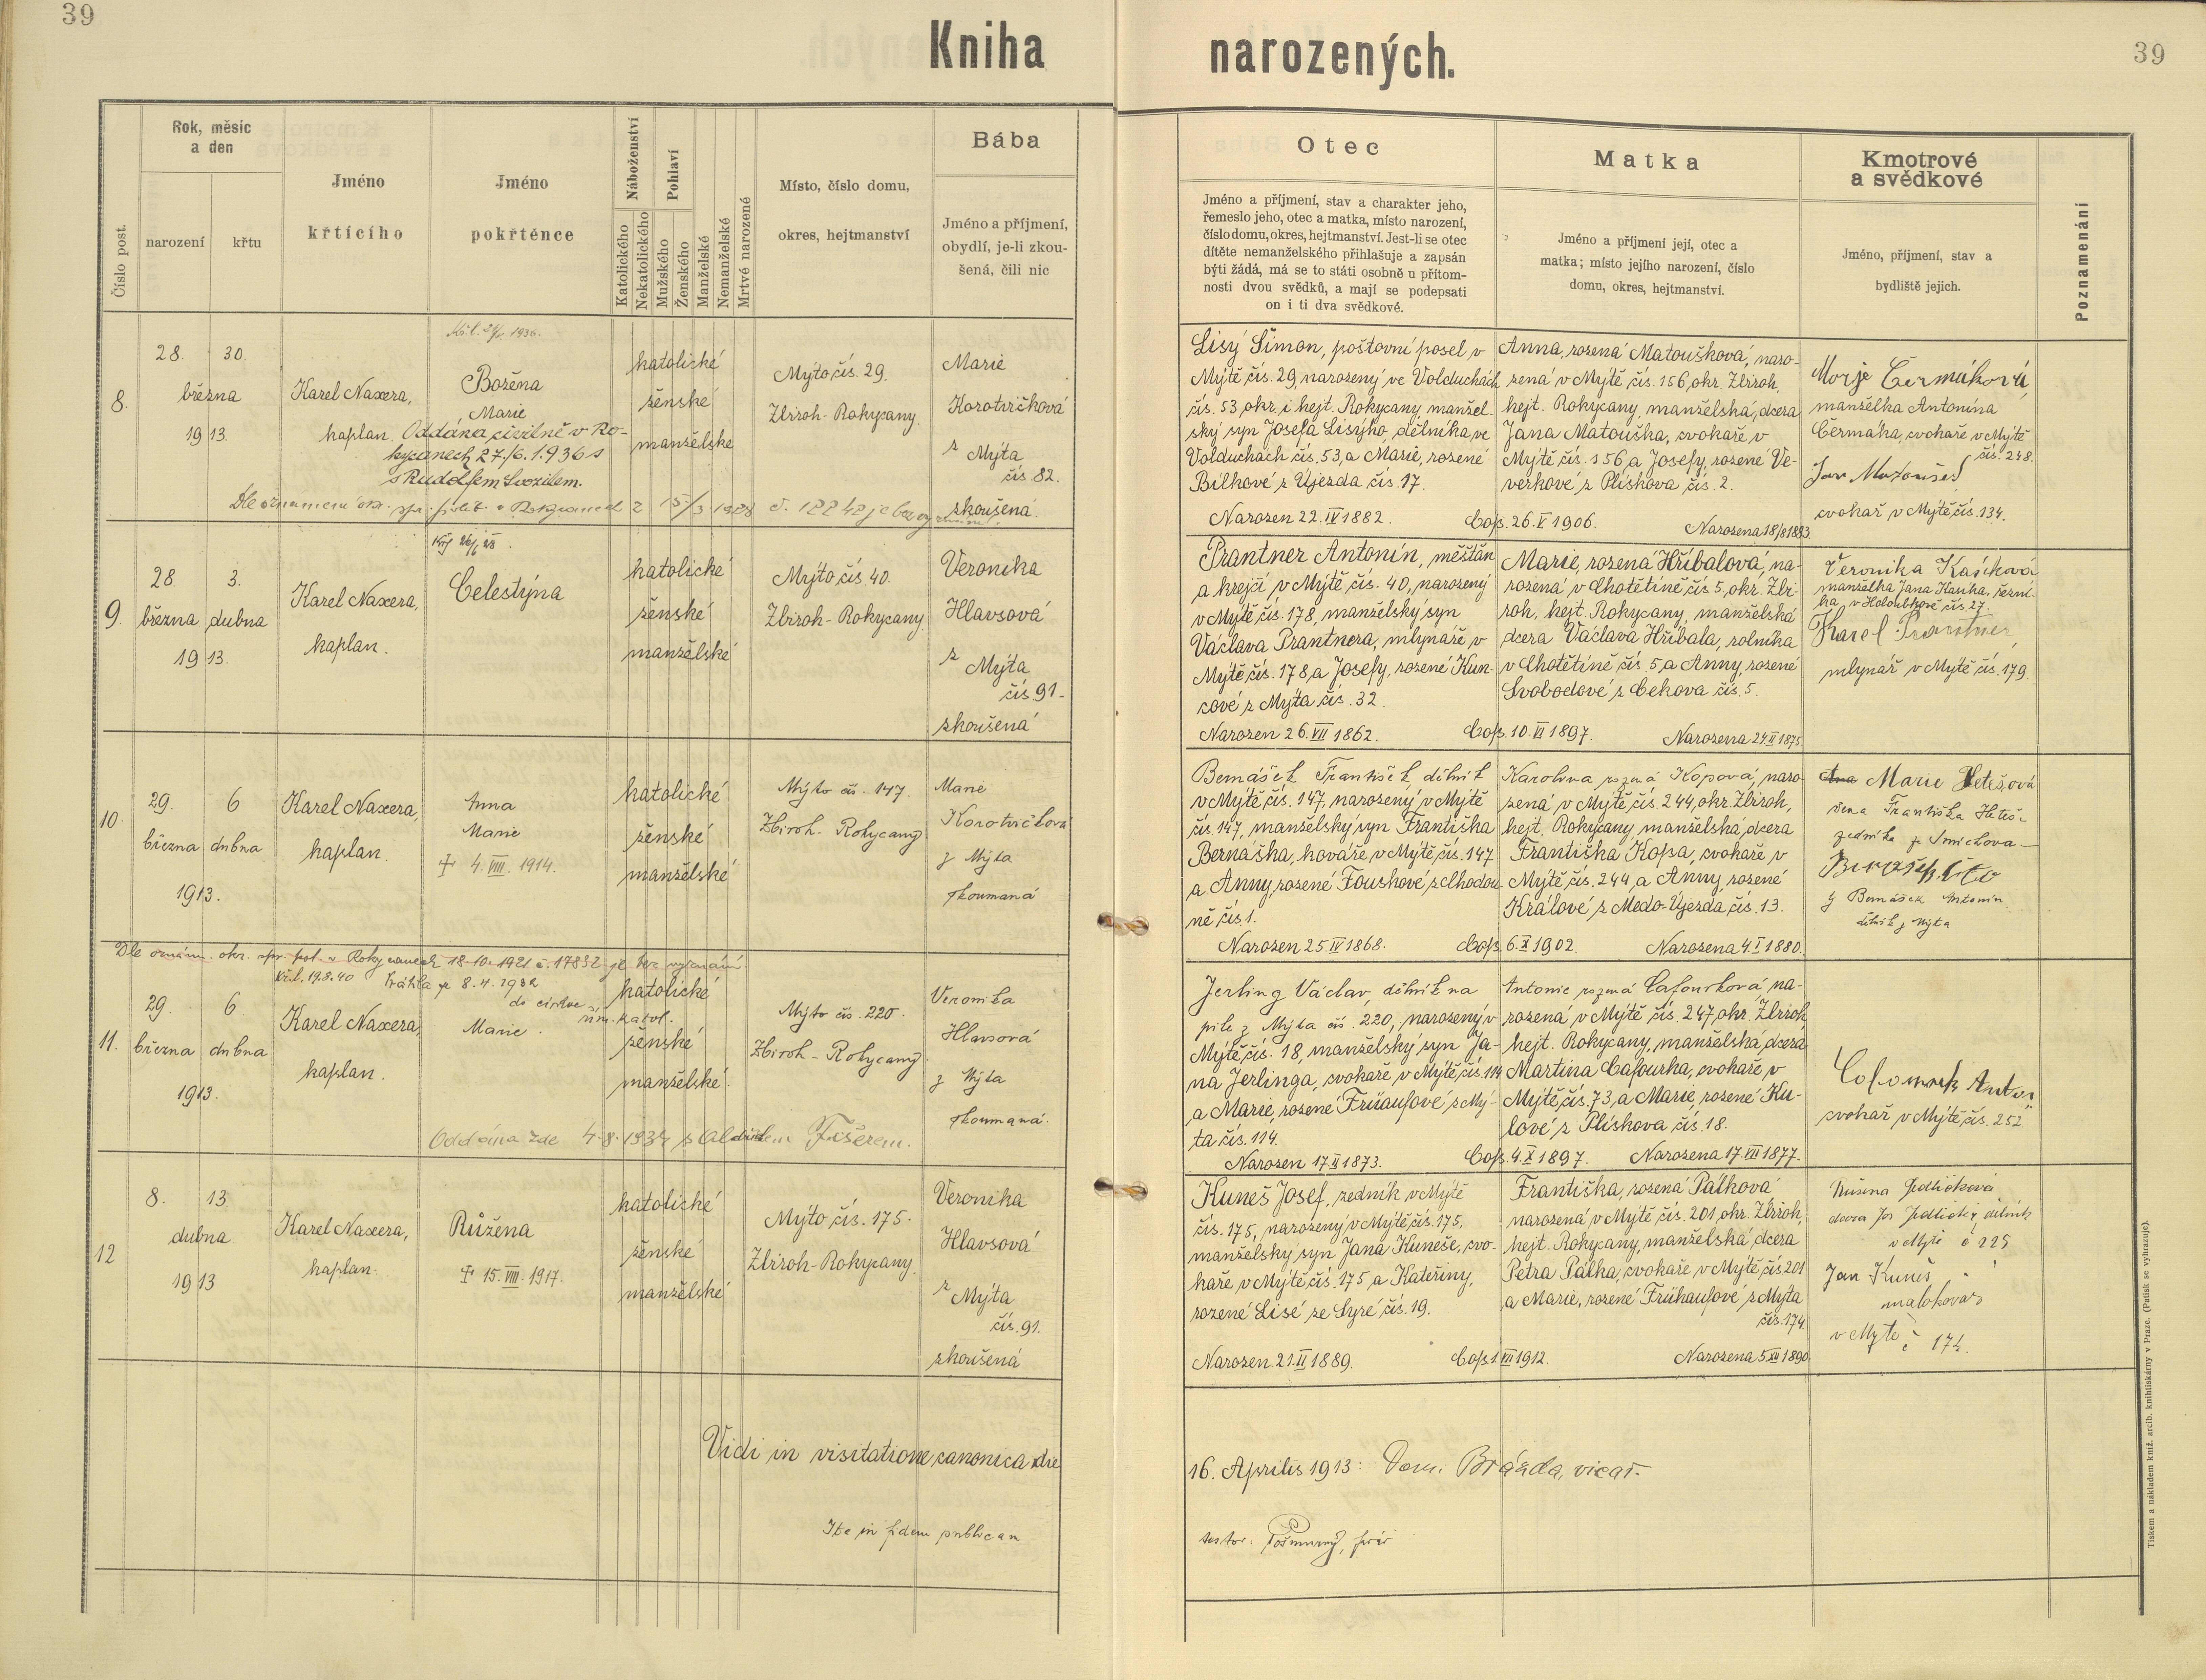 39
Kniha narozených.
39
Číslo post.
Rok, měsíc
a den
narození
křtu
Jméno
křtícího
Jméno
pokřtěnce
Náboženství
Katolického
Nekatolického
Pohlaví
Mužského
Ženského
Manželské
Nemanželské
Mrtvé narozené
Místo, číslo domu,
okres, hejtmanství
Bába
Jméno a příjmení,
obydlí, je-li zkou-
šená, čili nic
Otec
Jméno a příjmení, stav a charakter jeho,
řemeslo jeho, otec a matka, místo narození,
číslo domu, okres, hejtmanství. Jest-li se otec
dítěte nemanželského přihlašuje a zapsán
býti žádá, má se to státi osobně u přítom-
nosti dvou svědků, a mají se podepsati
on i ti dva svědkové.
Matka
Jméno a příjmení její, otec a
matka; místo jejího narození, číslo
domu, okres, hejtmanství.
Kmotrové
a svědkové
Jméno, příjmení, stav a
bydliště jejich.
Poznamenání
8.
28. 30.
března
1913.
Karel Naxera,
kaplan.
1936.
Božena
Marie
Oddána civilně v Ro-
kycanech 27/6. 1936 s
s Rudolfem Svozilem.
katolické
ženské
manželské
Mýto čís. 29.
Zbiroh-Rokycany.
Marie
Korotvičková
z Mýta
čís. 82.
zkoušená.
Lisý Šimon, poštovní posel v
Mýtě čís. 29, narozený ve Volduchách
čís. 53, okr. i hejt. Rokycany, manžel-
ský syn Josefa Lisýho, dělníka, ve
Volduchách čís. 53, a Marie, rozené
Bílkové z Újezda čís. 17.
Narozen 22. IV 1882. Cop. 26. V 1906.
Anna, rozená Matoušková, naro-
zená v Mýtě čís. 156, okr. Zbiroh,
hejt. Rokycany, manželská dcera
Jana Matouška, cvokaře v
Mýtě čís. 156, a Josefy, rozené Ve-
verkové z Plískova čís. 2.
Narozena 18/8 1883.
Čermáková
manželka Antonína
Čermáka, cvokaře v Mýtě
čís. 248.
Jan Matoušek
cvokař v Mýtě čís. 134.
9.
28. 3.
března dubna
1913.
Karel Naxera,
kaplan.
Celestýna
katolické
ženské
manželské
Mýto čís. 40.
Zbiroh-Rokycany.
Veronika
Hlavsová
z Mýta
čís. 91.
zkoušená
Prantner Antonín, měšťán
a krejčí v Mýtě čís. 40, narozený
v Mýtě čís. 178, manželský syn
Václava Prantnera, mlynáře v
Mýtě čís. 178, a Josefy, rozené Kun-
cové z Mýta čís. 32.
Narozen 26. VII 1862. Cop. 10. VI 1897.
Marie, rozená Hříbalová, na-
rozená v Chotětíně čís 5, okr. Zbi-
roh, hejt. Rokycany, manželská
dcera Václava Hříbala, rolníka
v Chotětíně čís. 5, a Anny, rozené
Svobodové z Čekova čís. 5.
Narozena 24. II 1875.
Veronika
manželka Jana
v Holoubkově čís. 27.
Karel Prantner,
mlynář v Mýtě čís. 179.
10.
29. 6
března dubna
1913.
Karel Naxera,
kaplan.
Anna
Marie
✝ 4. VIII. 1914.
katolické
ženské
manželské
Mýto čís. 147.
Zbiroh-Rokycany
Marie
Korotvičková
z Mýta
zkoumaná
Bernášek František, dělník
v Mýtě čís. 147, narozený v Mýtě
čís. 147, manželský syn Františka
Bernáška, kováře, v Mýtě čís. 147
a Anny, rozené Fouskové z Chodou-
ně čís 1.
Narozen 25. IV 1868. Cop. 6. X 1902.
Karolina rozená Kopová, naro-
zená v Mýtě čís. 244, okr. Zbiroh,
hejt. Rokycany, manželská dcera
Františka Kopa, cvokaře v
Mýtě čís. 244, a Anny, rozené
Králové z Medo-Újezda čís. 13.
Narozena 4. I 1880.
Marie Hetešová
žena Františka Heteš-
zedníka ze Smíchova
Bernášek Antonín
dělník z Mýta
Dle oznám. okr. spr. pol. v Rokycanech 18-10-1921 č. 17832 je bez vyznání.
Vrátila se 8. 4. 1932
do církve
řím. katol.
11.
29. 6
března dubna
1913.
Karel Naxera,
kaplan.
Marie.
Oddána zde 4. 8. 1934 s Fišerem.
katolické
ženské
manželské.
Mýto čís. 220.
Zbiroh-Rokycany
Veronika
Hlavsová
z Mýta
zkoumaná.
Jerling Václav, dělník na
pile z Mýta čís. 220, narozený v
Mýtě čís. 18, manželský syn Ja-
na Jerlinga, cvokaře v Mýtě čís. 114
a Marie, rozené Frühaufové z Mý-
ta čís. 114.
Narozen 17. II 1873. Cop. 4. X 1897.
Antonie rozená Cafourková na-
rozená v Mýtě čís. 247, okr. Zbiroh,
hejt. Rokycany, manželská dcera
Martina Cafourka, cvokaře, v
Mýtě čís. 73, a Marie, rozené Ku-
lové z Plískova čís. 18.
Narozena 17. VII 1877.
cvokař v Mýtě čís. 252.
12
8. 13
dubna
1913
Karel Naxera,
kaplan.
Růžena
✝ 15. VIII. 1917.
katolické
ženské
manželské
Mýto čís. 175.
Zbiroh-Rokycany.
Veronika
Hlavsová
z Mýta
čís. 91.
zkoušená
Kuneš Josef, zedník v Mýtě
čís. 175, narozený v Mýtě čís. 175,
manželský syn Jana Kuneše, cvo-
kaře v Mýtě čís. 175 a Kateřiny,
rozené Lisé ze Syré čís. 19.
Narozen 21. II 1889. Cop. 1. VII 1912.
Františka, rozená Pálková
narozená v Mýtě čís. 201, okr. Zbiroh,
hejt. Rokycany, manželská dcera
Petra Pálka, cvokaře v Mýtě čís 201
a Marie, rozené Frühaufové z Mýta
čís. 174.
Narozena 5. XII 1890.
Růžena Jedličková
dcera Jos. Jedličky, dělník
v Mýtě č 225
Jan Kuneš
v Mýtě č 174.
Vidi in visitatione canonica die 16. Aprilis 1913: Dom. Brázda, vicař.
Ita in fidem publicam
Tiskem a nákladem kníž. arcib. knihtiskárny v Praze. (Patisk se vyhrazuje).